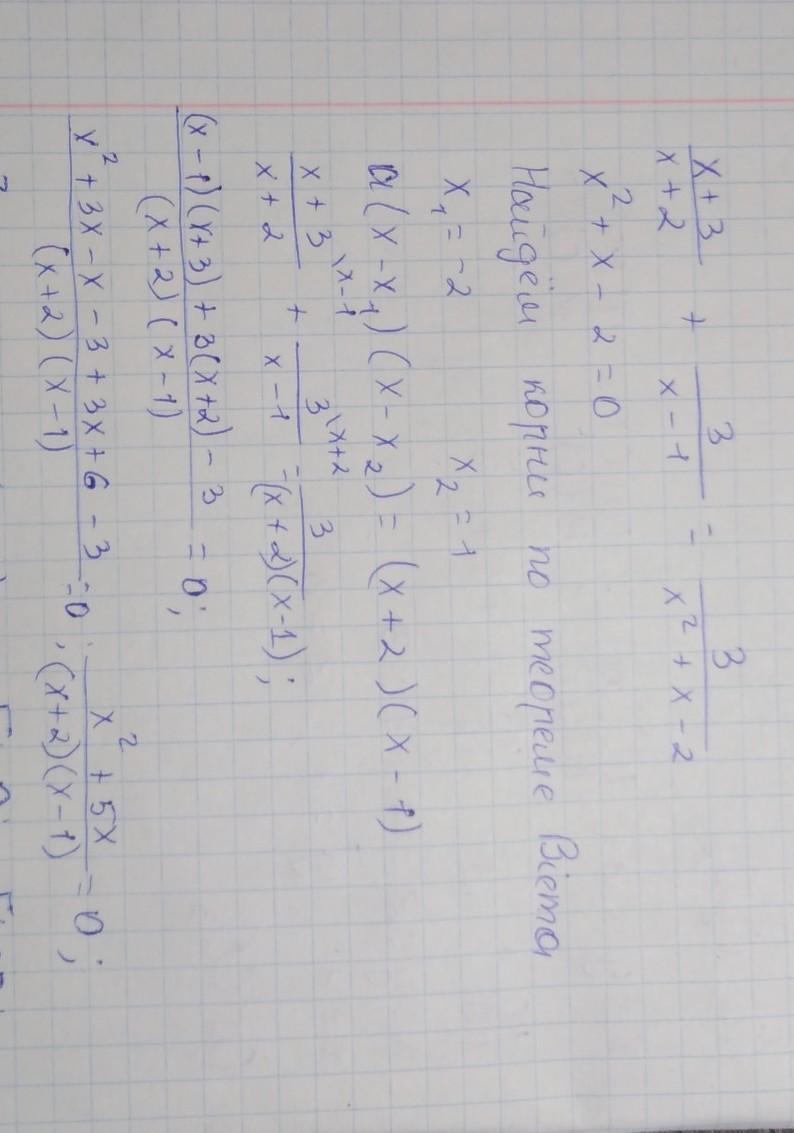 (x+3)/(x+2) + 3/(x-1) = 3/(x²+x-2)
x²+x-2=0
Найдём корни по теореме Вієта
x₁=-2 x₂=1
a(x-x₁)(x-x₂)=(x+2)(x-1)
(x+3)/(x+2) \x-1 + 3/(x-1) \x+2 = 3/((x+2)(x-1));
((x-1)(x+3)+3(x+2)-3)/((x+2)(x-1)) = 0;
(x²+3x-x-3+3x+6-3)/((x+2)(x-1)) = 0; (x²+5x)/((x+2)(x-1)) = 0;